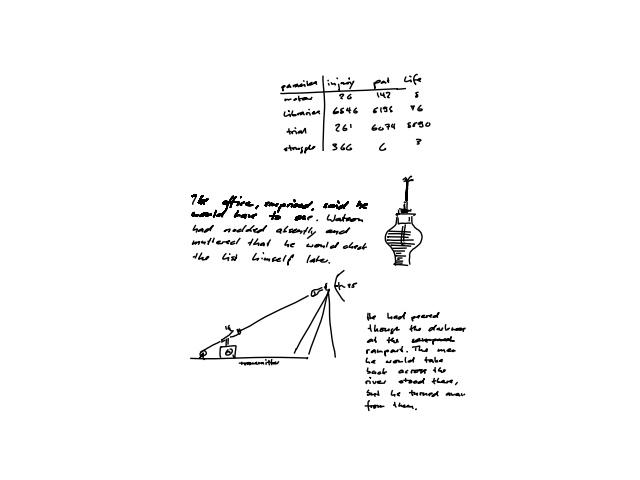 parasites injury pat life
motor 26 142 8
libraries 6546 6195 76
trial 261 6074 5590
struggle 366 6 3
The office, surprised, said he
would have to see. Watson
had nodded absently and
muttered that he would check
the list himself later.
transmitter
He had peered
through the darkness
at the
rampart. The men
he would take
back across the
river stood there,
but he turned away
from them.